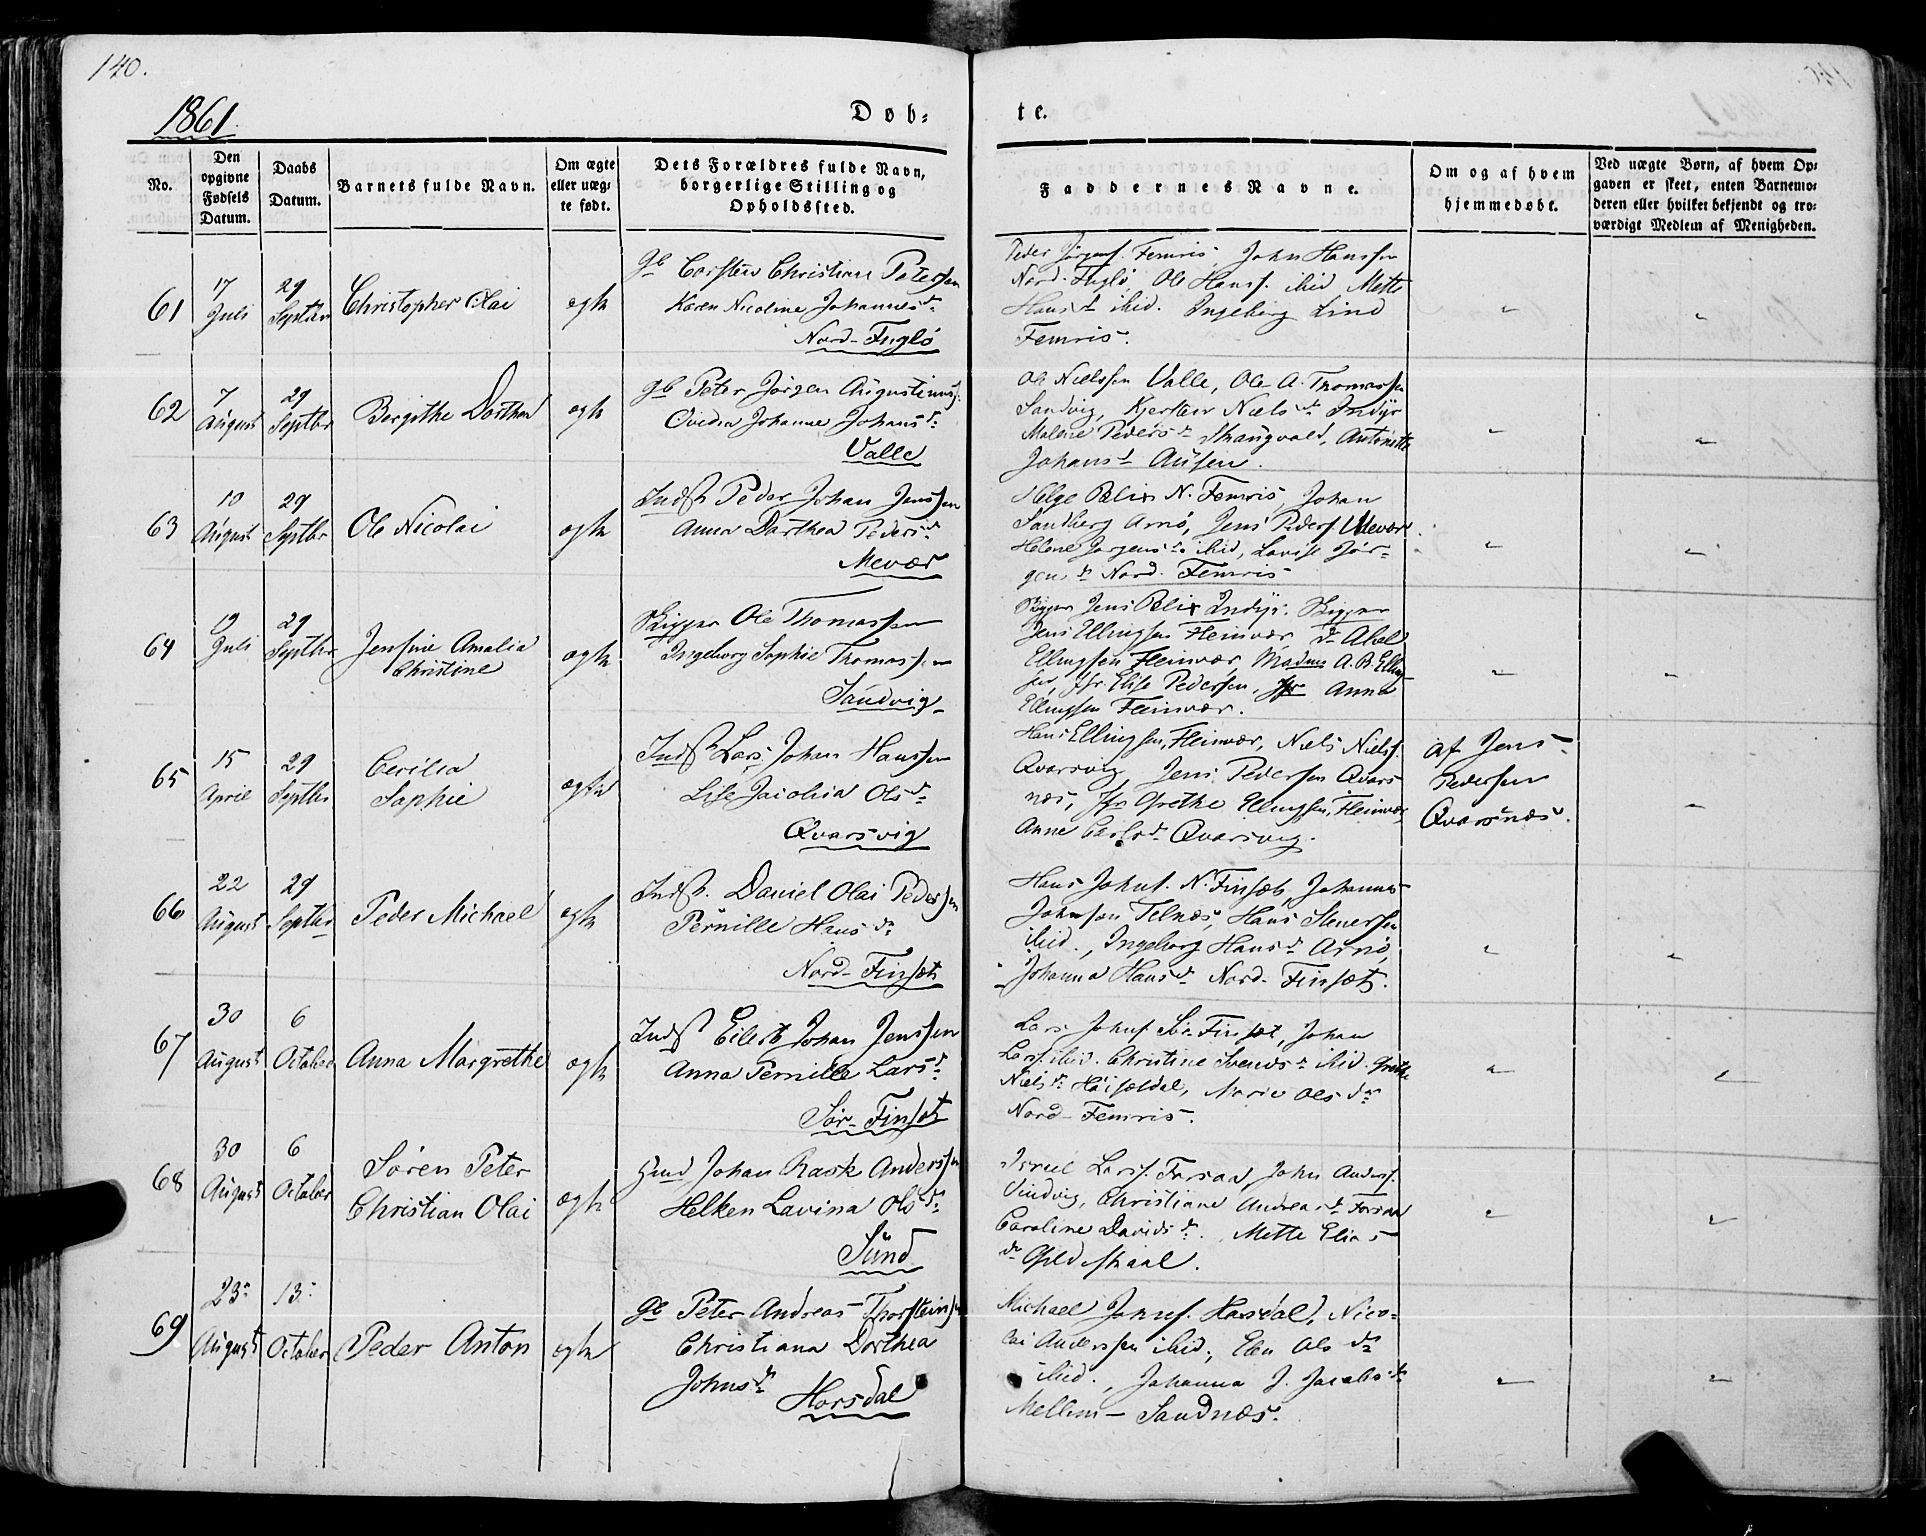 140.
1861.
Døb- te.
No.
Den opgivne Fødsels Datum.
Daabs Datum.
Barnets fulde Navn.
Om ægte eller uæg- te født.
Dets Forældres fulde Navn, borgerlige Stilling og Opholdssted.
Faddernes Navne.
Om og af hvem hjemmedøbt.
Ved uægte Børn, af hvem Op- gaven er skeet, enten Barnemo- deren eller hvilket bekjendt og tro- værdigt Medlem af Menigheden.
61
17 Juli
29 Septbr
Christopher Olai
ægte
Gb Carsten Christian Petersen
Karen Nicoline Johannesdr
Nord-Fuglø
Peder Jørgens. Femris, John Hanssen
Nord-Fuglø, Ole Hanss. ibid Mette
Hansdr ibid. Ingeborg Lind
Femris.
62
7 August
29 Septbr
Bergithe Dorthea
ægte
gb Peter Jørgen Augustinuss.
Ovedia Johanne Johansdr
Valle
Ole Nielssen Valle, Ole A. Thomassen
Sandvig, Kjersten Nielsdr Indyr
Malene Pedersdr Skaugvold, Antonette
Johansdr Ausen.
63
10 August
29 Septbr
Ole Nicolai
ægte
Indst Peder Johan Jenssen
Anna Darthea Pedersdr
Mevær
Helge Blix N. Femris, Johan
Sandberg Arnø, Jens Peders. Mevær
Helene Jørgensdr ibid, Lovise Jør-
gensdr Nord-Femris
64
19 Juli
29 Septbr
Jensine Amalia
Christine
ægte
Skipper Ole Thomassen
Ingeborg Sophie Thomassen
Sandvig
Skipper Jens Blix Indyr. Skipper
Jens Ellingsen Fleinvær, do Abel
Ellingsen Fleinvær, Madme A. B. Elling-
sen, Jfr. Elise Pedersen, Jfr Anna
Ellingsen Fleinvær.
65
15 April
29 Septbr
Cecilia
Sophie
ægte
Indst Lars Johan Hanssen
Lise Jacobia Olsdr
Qvarsvig
Hans Ellingsen, Fleinvær, Niels Nielss.
Qvarsvig, Jens Pedersen Qvars
næs, Jfr Grethe Ellingsen, Fleinvær,
Anne Carlsdr Qvarsvig.
af Jens
Pedersen
Qvarsnæs.
66
22 August
29 Septbr
Peder Michael
ægte
Indst. Daniel Olai Pedersen
Pernille Hansdr
Nord-Finsæt
Hans Johns. N. Finsæt, Johannes
Johnsen Telnæs, Hans Steensen
ibid., Ingeborg Hansdr Arnø,
Johanna Hansdr Nord-Finsæt.
67
30 August
6 October
Anna Margrethe
ægte
Indst Eilert Johan Jenssen
Anna Pernille Larsdr
Sør-Finsæt
Lars Johns. Sør-Finsæt, Johan
Larss. ibid. Christine Svendsdr ibid. Grethe
Nielsdr, Marie Olsdr
Nord-Femris.
68
30 August
6 October
Søren Peter
Christian Olai
ægte
Johan Rask Anderssen
Helken Lavina Olsdr
Sund
Larss. Forsaa, John Anderss.
Vindvig, Christiane Andreasdr Forsaa
Caroline Davidsdr. Mette Elias
dr Gildeskaal.
69
23 August
13 October
Peder Anton
ægte
Gb Peter Andreas Thorsteinsen
Christiana Dorthea
Johnsdr Horsdal
Michael Jonass. Horsdal, Nico-
lai Anderssen ibid., Elen Olsdr
ibid., Johanna J. Jacobsdr
Mellem-Sandnæs.